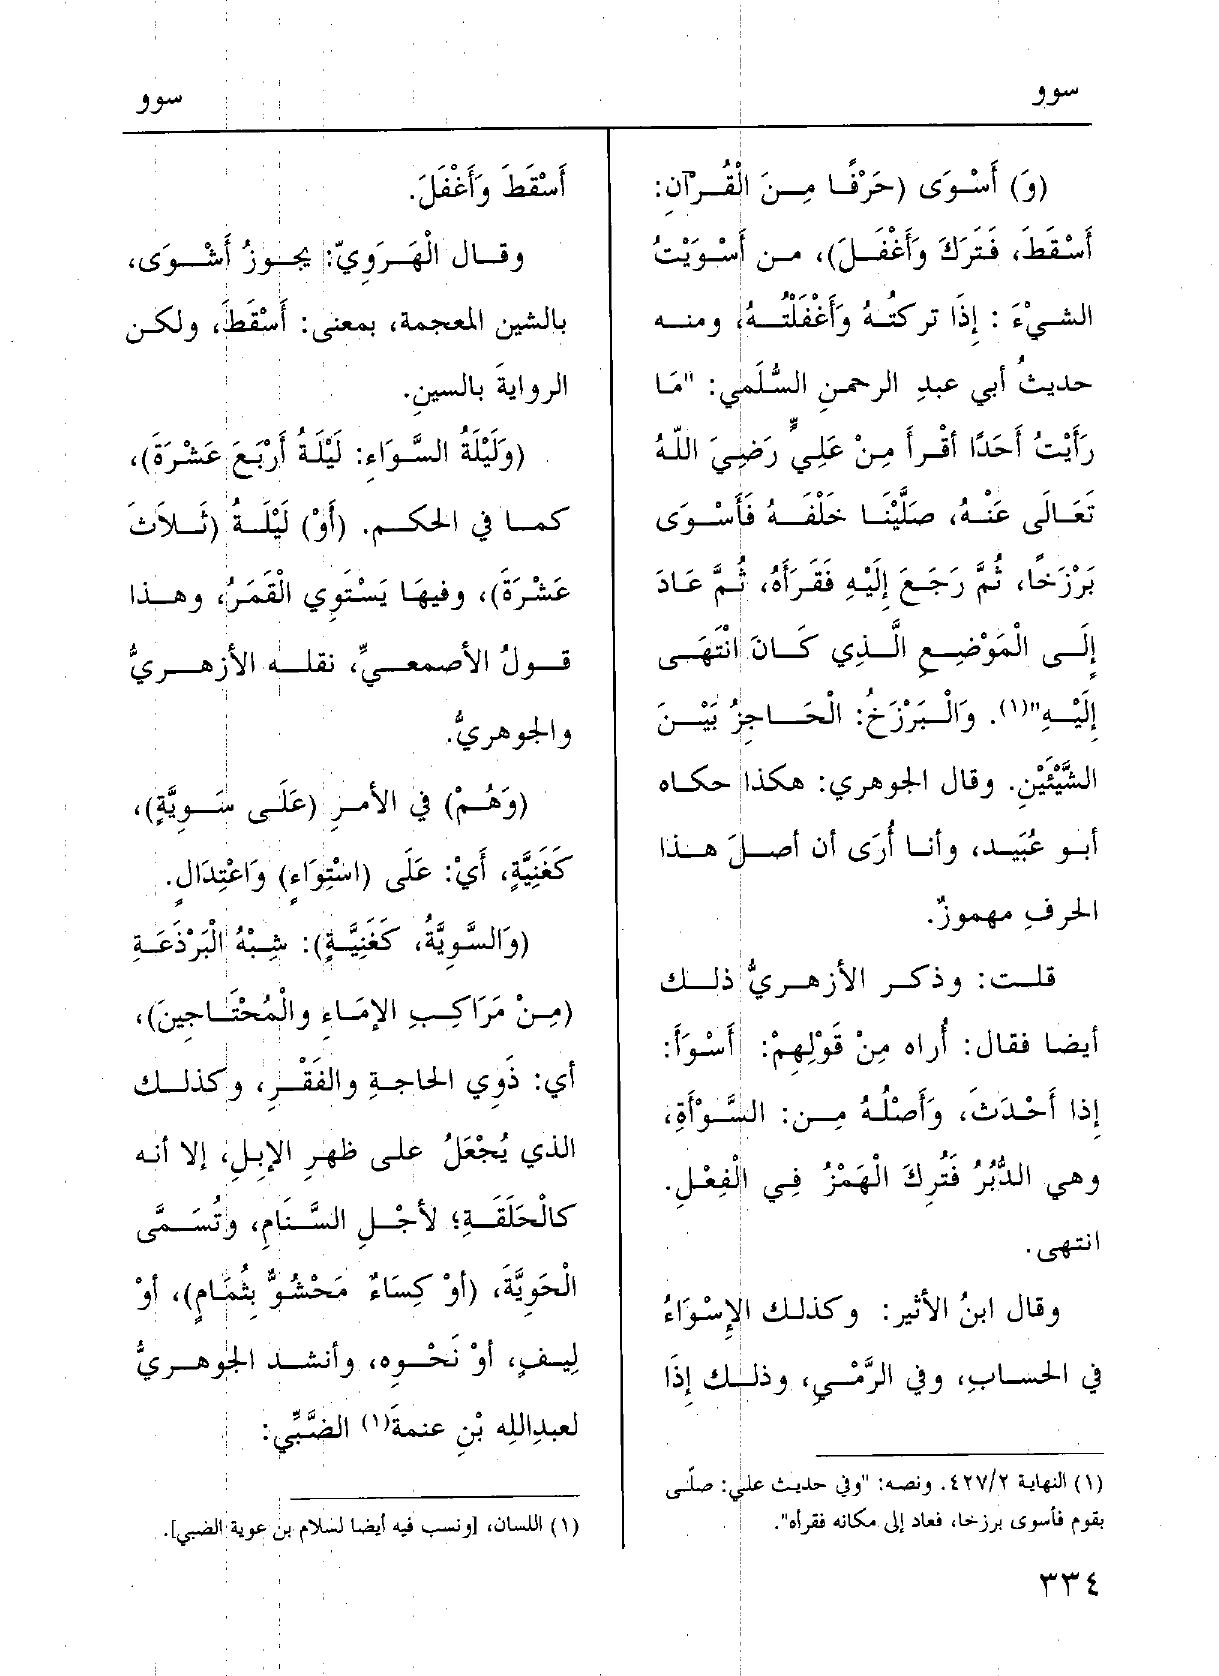 سوو
سوو
(وَ) أَسْوَى (حَرْفًا مِنَ الْقُرْآنِ:
أَسْقَطَ، فَتَرَكَ وَأَغْفَلَ)، من أَسْوَيْتُ
الشيْءَ : إِذَا تركتُهُ وَأَغْفَلْتُهُ، ومنه
حديثُ أبي عبدِ الرحمنِ السُّلَمي: "مَا
رَأَيْتُ أَحَدًا أقْرأَ مِنْ عَلِيٍّ رَضِيَ اللّهُ
تَعَالَى عَنْهُ، صَلَّيْنَا خَلْفَهُ فَأَسْوَى
بَرْزَخًا، ثُمَّ رَجَعَ إِلَيْهِ فَقَرَأَهُ، ثُمَّ عَادَ
إِلَى الْمَوْضِعِ الَّذِي كَانَ انْتَهَى
إِلَيْهِ"(١). وَالْبَرْزَخُ: الْحَاجِزُ بَيْنَ
الشَّيْئَيْنِ. وقال الجوهري: هكذا حكاه
أبو عُبَيد، وأنا أُرَى أن أصلَ هذا
الحرفِ مهموزٌ.
قلت: وذكر الأزهريُّ ذلك
أيضا فقال: أُراه مِنْ قَوْلِهِمْ: أَسْوَأَ:
إذا أَحْدَثَ، وَأَصْلُهُ مِن: السَّوْأَةِ،
وهي الدُّبُرُ فَتُرِكَ الْهَمْزُ فِي الْفِعْلِ.
انتهى.
وقال ابنُ الأثير: وكذلك الإِسْوَاءُ
في الحسابِ، وفي الرَّمْيِ، وذلك إِذَا
(١) النهاية ٤٢٧/٢. ونصه: "وفي حديث علي: صلّى
بقوم فأسوى برزخا، فعاد إلى مكانه فقرأه".
أَسْقَطَ وَأَغْفَلَ.
وقال الْهَرَوِيّ: يجوزُ أَشْوَى،
بالشين المعجمة، بمعنى: أَسْقَطَ، ولكن
الروايةَ بالسينِ.
(وَلَيْلَةُ السَّوَاءِ: لَيْلَةُ أَرْبَعَ عَشْرَةَ)،
كما في الحكم. (أَوْ) لَيْلَةُ (ثَلاَثَ
عَشْرَةَ)، وفيهَا يَسْتَوِي الْقَمَرُ، وهذا
قولُ الأصمعيِّ، نقله الأزهريُّ
والجوهريُّ.
(وَهُمْ) في الأمرِ (عَلَى سَوِيَّةٍ)،
كَغَنِيَّةٍ، أَيْ: عَلَى (اسْتِوَاءٍ) وَاعْتِدَالٍ.
(وَالسَّوِيَّةُ، كَغَنِيَّةٍ): شِبْهُ الْبَرْذَعَةِ
(مِنْ مَرَاكِبِ الإِمَاءِ والْمُحْتَاجِينَ)،
أي: ذَوِي الحاجةِ والفَقْرِ، وكذلك
الذي يُجْعَلُ على ظهرِ الإبلِ، إلا أنه
كالْحَلَقَةِ؛ لأجْلِ السَّنَامِ، وتُسَمَّى
الْحَوِيَّةَ، (أوْ كِسَاءٌ مَحْشُوٌّ بِثُمَامٍ)، أوْ
لِيفٍ، أوْ نَحْوِهِ، وأنشد الجوهريُّ
لعبدِاللهِ بْنِ عنمةَ(١) الضَّبِّي:
(١) اللسان، [ونسب فيه أيضا لسلام بن عوية الضبي].
٣٣٤